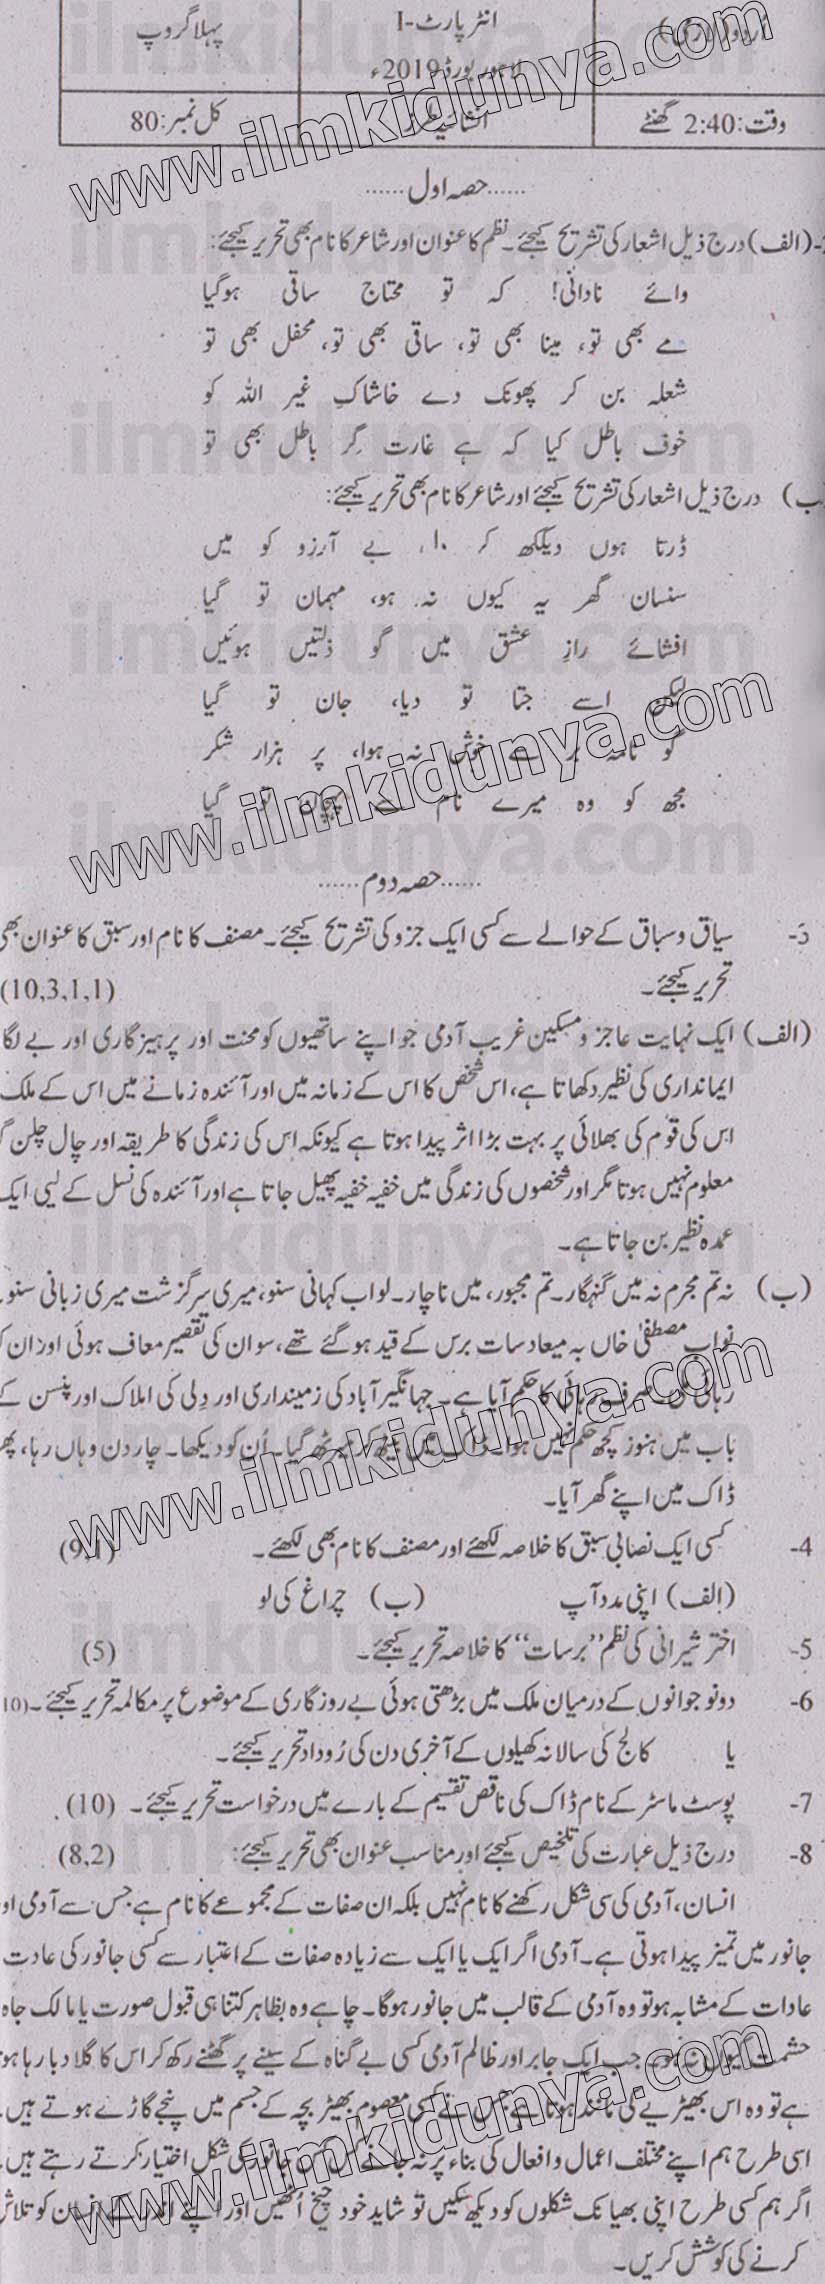 اُردو (لازمی) انٹر پارٹ-I پہلا گروپ
لاہور بورڈ 2019ء
وقت: 2:40 گھنٹے انشائیہ طرز کل نمبر: 80
......حصہ اول......
(الف) درج ذیل اشعار کی تشریح کیجئے۔ نظم کا عنوان اور شاعر کا نام بھی تحریر کیجئے:
وائے نادانی! کہ تو محتاج ساقی ہوگیا
مے بھی تو، مینا بھی تو، ساقی بھی تو، محفل بھی تو
شعلہ بن کر پھونک دے خاشاکِ غیر اللہ کو
خوف باطل کیا کہ ہے غارت گر باطل بھی تو
(ب) درج ذیل اشعار کی تشریح کیجئے اور شاعر کا نام بھی تحریر کیجئے:
ڈرتا ہوں دیکھ کر بے آرزو کو میں
سنسان گھر یہ کیوں نہ ہو، مہمان تو گیا
افشائے رازِ عشق میں گو ذلتیں ہوئیں
لیکن اسے جتا تو دیا، جان تو گیا
گو نامہ بر سے خوش نہ ہوا، پر ہزار شکر
مجھ کو وہ میرے نام سے پہچان تو گیا
......حصہ دوم......
3- سیاق و سباق کے حوالے سے کسی ایک جزو کی تشریح کیجئے۔ مصنف کا نام اور سبق کا عنوان بھی
تحریر کیجئے۔ (10,3,1,1)
(الف) ایک نہایت عاجز و مسکین غریب آدمی جو اپنے ساتھیوں کو محنت اور پرہیزگاری اور بے لگا
ایمانداری کی نظیر دکھاتا ہے، اس شخص کا اس کے زمانہ میں اور آئندہ زمانے میں اس کے ملک
اس کی قوم کی بھلائی پر بہت بڑا اثر پیدا ہوتا ہے کیونکہ اس کی زندگی کا طریقہ اور چال چلن گ
معلوم نہیں ہوتا مگر اور شخصوں کی زندگی میں خفیہ خفیہ پھیل جاتا ہے اور آئندہ کی نسل کے لیی ایک
عمدہ نظیر بن جاتا ہے۔
(ب) نہ تم مجرم نہ میں گنہگار۔ تم مجبور، میں ناچار۔ لو اب کہانی سنو، میری سرگزشت میری زبانی سنو۔
نواب مصطفیٰ خاں بہ میعاد سات برس کے قید ہو گئے تھے، سو ان کی تقصیر معاف ہوئی اور ان ک
رہائی ملی۔ صرف رہائی کا حکم آیا ہے۔ جہانگیر آباد کی زمینداری اور دِلی کی املاک اور پنسن کے
باب میں ہنوز کچھ حکم نہیں ہوا۔ ڈاک میں بیٹھ کر میرٹھ گیا۔ اُن کو دیکھا۔ چار دن وہاں رہا، پھر
ڈاک میں اپنے گھر آیا۔
4- کسی ایک نصابی سبق کا خلاصہ لکھئے اور مصنف کا نام بھی لکھئے۔ (9,1)
(الف) اپنی مدد آپ (ب) چراغ کی لو
5- اختر شیرانی کی نظم ”برسات“ کا خلاصہ تحریر کیجئے۔ (5)
6- دو نوجوانوں کے درمیان ملک میں بڑھتی ہوئی بے روزگاری کے موضوع پر مکالمہ تحریر کیجئے۔ (10
یا کالج کی سالانہ کھیلوں کے آخری دن کی رُوداد تحریر کیجئے۔
7- پوسٹ ماسٹر کے نام ڈاک کی ناقص تقسیم کے بارے میں درخواست تحریر کیجئے۔ (10)
8- درج ذیل عبارت کی تلخیص کیجئے اور مناسب عنوان بھی تحریر کیجئے: (8,2)
انسان، آدمی کی سی شکل رکھنے کا نام نہیں بلکہ ان صفات کے مجموعے کا نام ہے جس سے آدمی او
جانور میں تمیز پیدا ہوتی ہے۔ آدمی اگر ایک یا ایک سے زیادہ صفات کے اعتبار سے کسی جانور کی عادت
عادات کے مشابہ ہو تو وہ آدمی کے قالب میں جانور ہوگا۔ چاہے وہ بظاہر کتنا ہی قبول صورت یا مالک جاہ
حشمت کیوں نہ ہو۔ جب ایک جابر اور ظالم آدمی کسی بے گناہ کے سینے پر گھٹنے رکھ کر اس کا گلا دبا رہا ہو
ہے تو وہ اس بھیڑیے کی مانند ہوتا ہے جس نے کسی معصوم بھیڑ بچہ کے جسم میں پنجے گاڑے ہوتے ہیں۔
اسی طرح ہم اپنے مختلف اعمال و افعال کی بناء پر نہ جانے کس کس جانور کی شکل اختیار کرتے رہتے ہیں۔
اگر ہم کسی طرح اپنی بھیانک شکلوں کو دیکھ سکیں تو شاید خود چیخ اُٹھیں اور اپنے اندر کے انسان کو تلاش
کرنے کی کوشش کریں۔
www.ilmkidunya.com
www.ilmkidunya.com
www.ilmkidunya.com
www.ilmkidunya.com